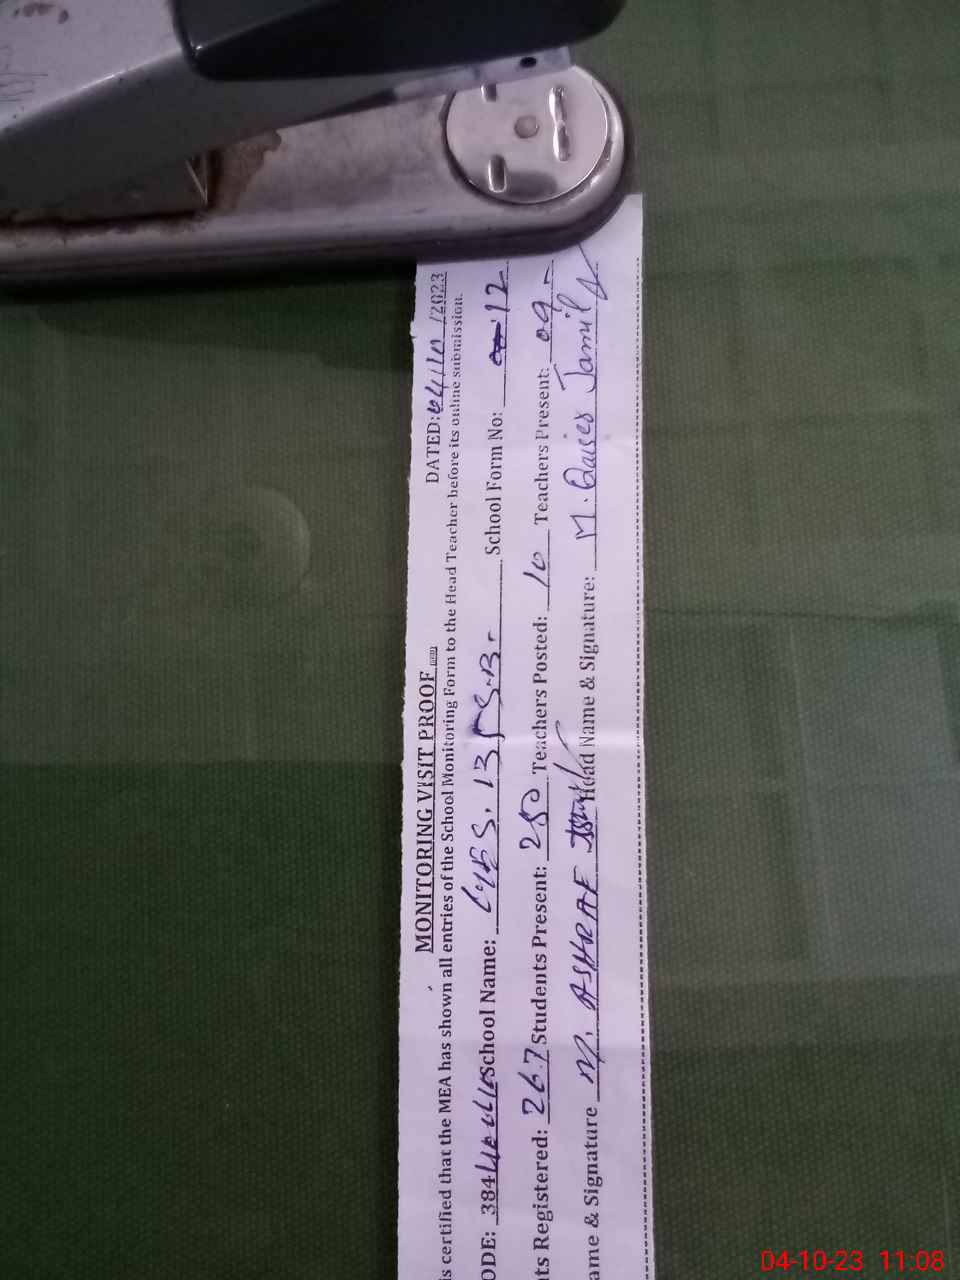 MONITORING VISIT PROOF
DATED: 04/10/2023
s certified that the MEA has shown all entries of the School Monitoring Form to the Head Teacher before its online submission.
ODE: 384 School Name: 135 S.B. School Form No: 12
ts Registered: 267 Students Present: 250 Teachers Posted: 10 Teachers Present: 09
ame & Signature M. ASHRAF Head Name & Signature: M. Qaiser Jamil
04-10-23 11:08